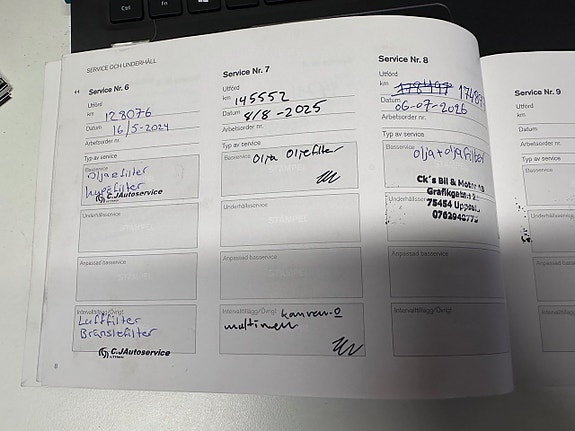 Ctrl
Fn
Alt
SERVICE OCH UNDERHÅLL
Service Nr. 6
Utförd
km 128076
Datum 16/5-2024
Arbetsorder nr.
Typ av service
Basservice
Oljaefilter
kupéfilter
C.JAutoservice
Underhållsservice
STÄMPEL
Anpassad basservice
Intervalltillägg/Övrigt
Luftfilter
Bränslefilter
C.JAutoservice
8
Service Nr. 7
Utförd
km 145552
Datum 8/8-2025
Arbetsorder nr.
Typ av service
Basservice Olja Oljefilter
STÄMPEL
Underhållsservice
STÄMPEL
Anpassad basservice
Intervalltillägg/Övrigt
multirem
Service Nr. 8
Utförd
km 178497
Datum 06-07-2026
Arbetsorder nr.
Typ av service
Basservice
olja+oljafilter
Ck's Bil & Motor AB
Grafikgatan
75454 Uppsala
Underhållsservice
Anpassad basservice
Intervalltillägg/Övrigt
Service Nr. 9
Utförd
km
Datum
Arbetsorder nr.
Typ av service
Basservice